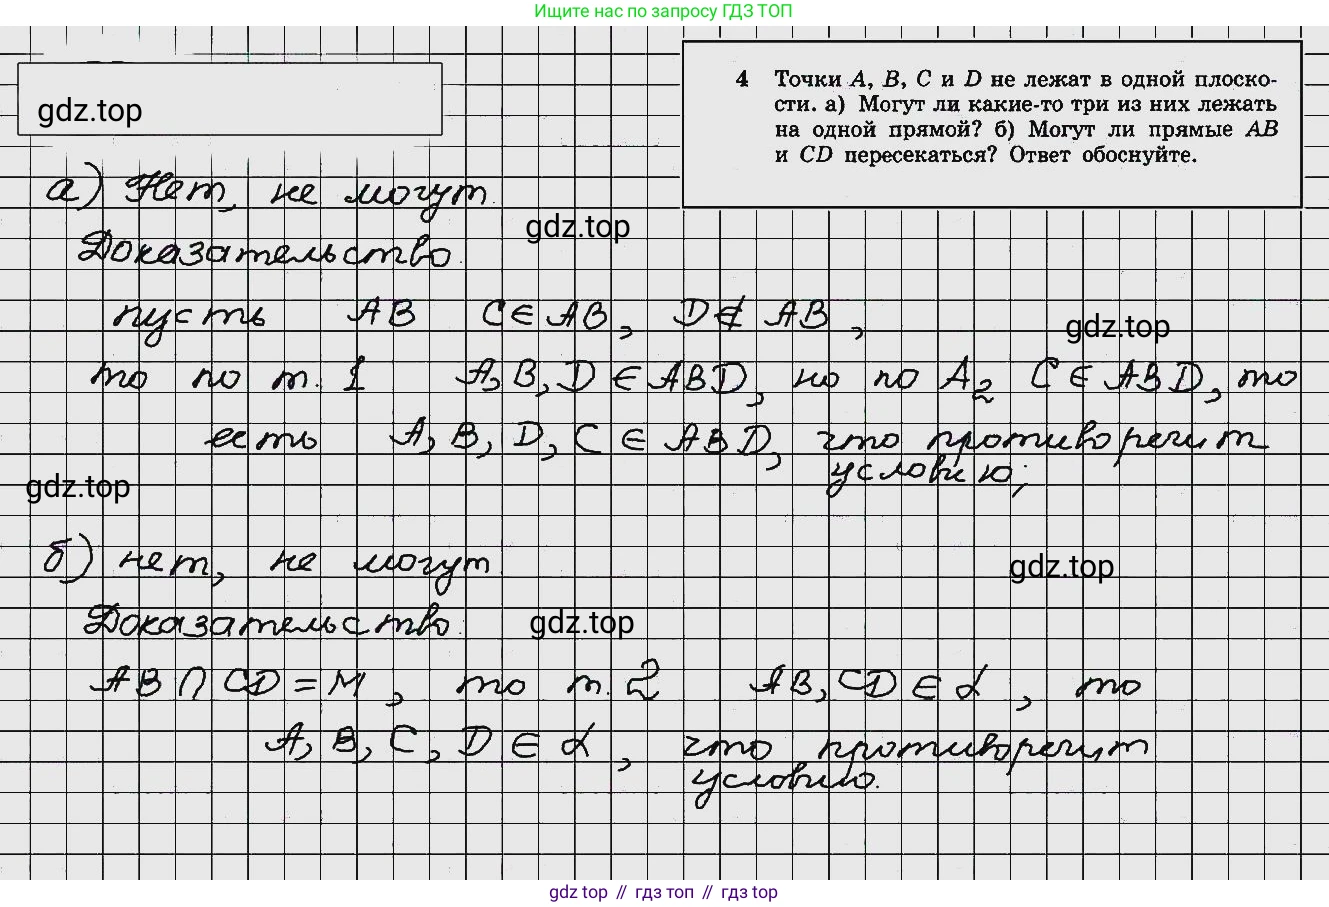 Ищите нас по запросу ГДЗ ТОП
gdz.top
4 Точки A, B, C и D не лежат в одной плоско-
сти. а) Могут ли какие-то три из них лежать
на одной прямой? б) Могут ли прямые AB
и CD пересекаться? Ответ обоснуйте.
а) Нет, не могут.
gdz.top
Доказательство.
пусть AB C∈AB, D∉AB,
gdz.top
то по т. 1 A,B,D∈ABD, но по A₂ C∈ABD, то
есть A,B,D,C∈ABD, что противоречит
условию;
gdz.top
б) нет, не могут.
gdz.top
Доказательство.
gdz.top
AB∩CD=M, то т.2 AB,CD∈α, то
A,B,C,D∈α, что противоречит
условию.
gdz top // гдз топ // gdz top